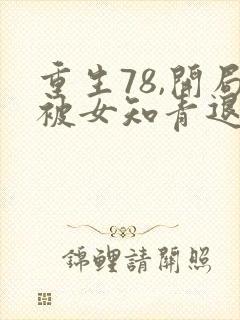 重生78,開局
被女知青退
錦鯉請開照